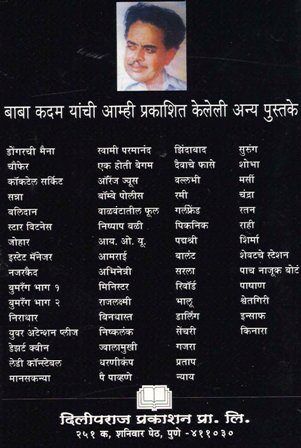 बाबा कदम यांची आम्ही प्रकाशित केलेली अन्य पुस्तके
डोंगरची मैना
चौफेर
कॉकटेल सर्किट
सन्ना
बलिदान
स्टार विटनेस
जोहार
इस्टेट मॅनेजर
नजरकैद
बुमरँग भाग १
बुमरँग भाग २
निराधार
युवर अटेन्शन प्लीज
डेझर्ट क्वीन
लेडी कॉन्स्टेबल
मानसकन्या
स्वामी परमानंद
एक होती बेगम
ऑरेंज ज्यूस
बॉम्बे पोलीस
वाळवंटातील फूल
निष्पाप बळी
आय. ओ. यू.
आमराई
अभिनेत्री
मिनिस्टर
राजलक्ष्मी
बिनधास्त
निष्कलंक
ज्वालामुखी
धरणीकंप
पै पाव्हणे
झिंदाबाद
दैवाचे फासे
वल्लभी
रमी
गर्लफ्रेंड
पिकनिक
पद्मश्री
बालंट
सरला
रिवॉर्ड
भालू
डार्लिंग
सेंचरी
गजरा
प्रताप
न्याय
सुरुंग
शोभा
मर्सी
चंद्रा
रतन
राही
शिर्मा
शेवटचे स्टेशन
पाच नाजूक बोटं
पाषाण
श्वेतगिरी
इन्साफ
किनारा
दिलीपराज प्रकाशन प्रा. लि.
२५१ क, शनिवार पेठ, पुणे -४११०३०